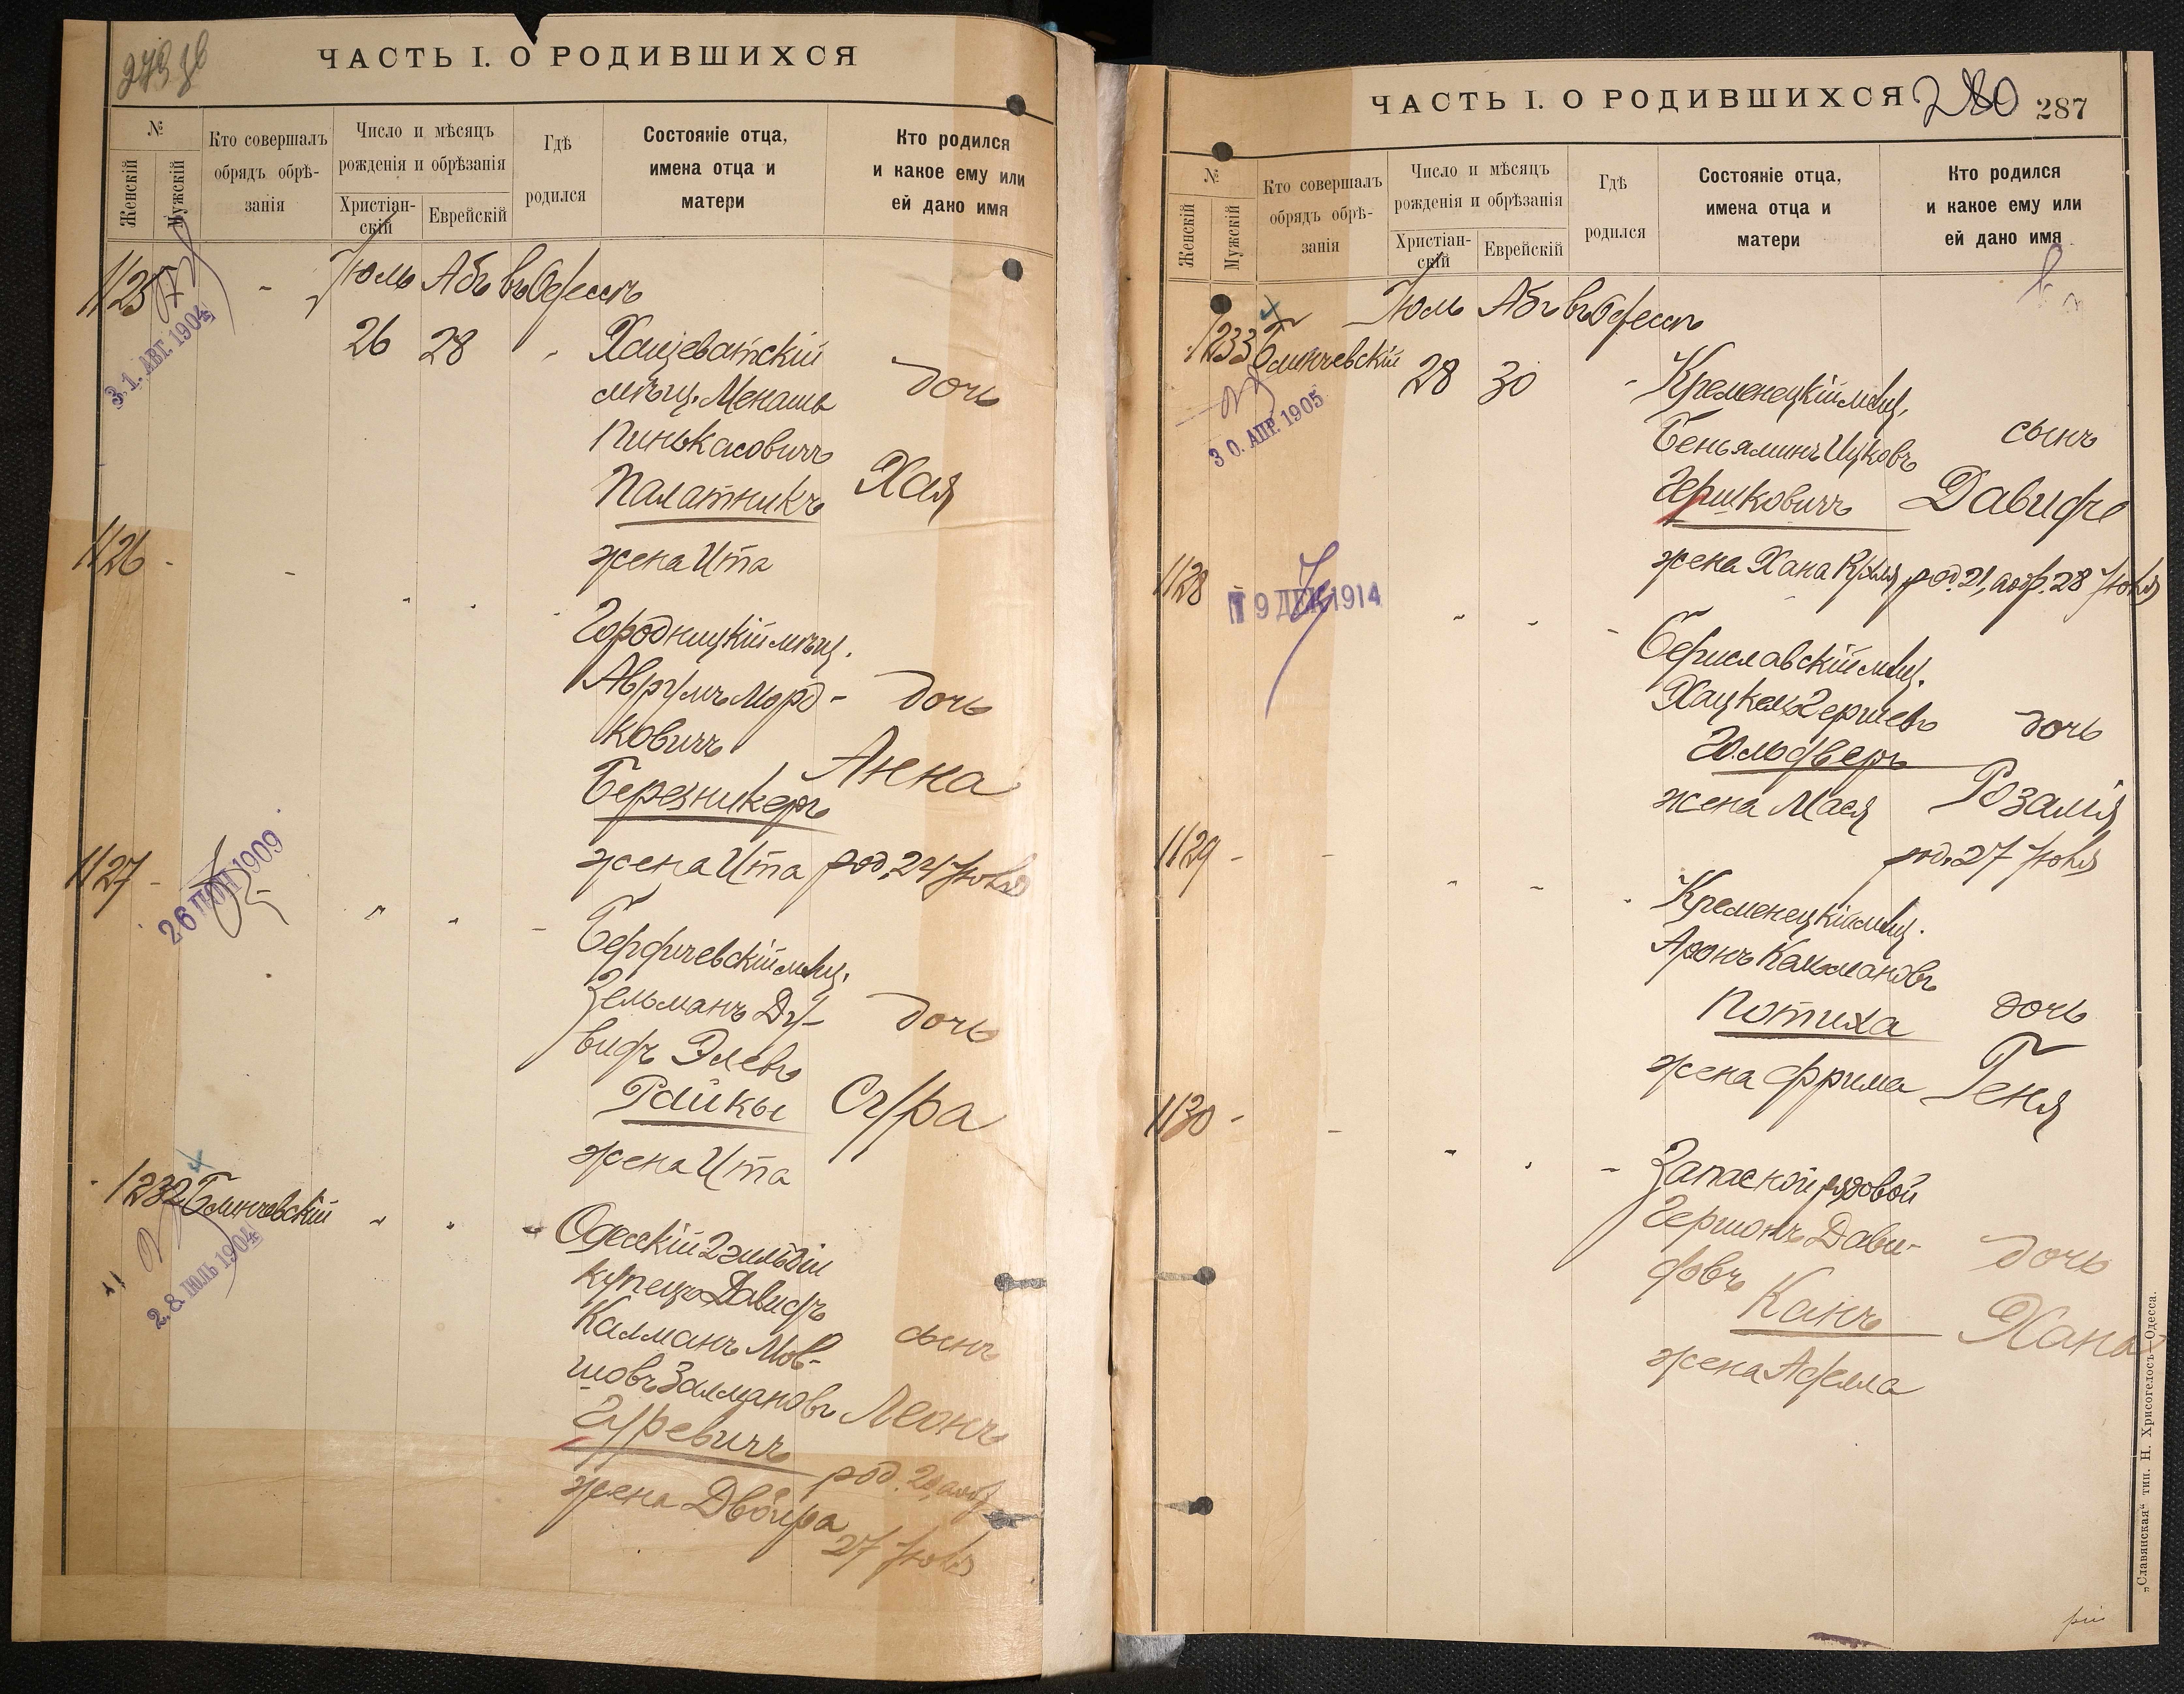 279 об
ЧАСТЬ I. О РОДИВШИХСЯ
№
Женскій
Мужскій
Кто совершалъ
обрядъ обрѣ-
занія
Число и мѣсяцъ
рожденія и обрѣзанія
Христіан-
скій
Еврейскій
Гдѣ
родился
Состояніе отца,
имена отца и
матери
Кто родился
и какое ему или
ей дано имя
1125
31. АВГ. 1904
Іюль Абъ въ Одессѣ
26 28
Хащеватскій
мѣщ. Менашъ
Пинькасовичъ
Палатникъ
жена Ита
дочь
Хая
1126
Городницкій мѣщ.
Аврумъ Морд-
ковичъ
Березникеръ
жена Ита
дочь
Анна
род. 24 Іюля
1127
26 ІЮН 1909
Бердичевскій мѣщ.
Зельманъ Ду-
видъ Элевъ
Райкы
жена Ита
дочь
Сура
1232 Блинчевскій
28 ІЮЛЬ 1904
Одесскій 2 гильдіи
купецъ Давидъ
Калманъ Мов-
шовъ Залмановъ
Гуревичъ
жена Двойра
сынъ
Леонъ
род. 20, аобр
27 Іюля
ЧАСТЬ I. О РОДИВШИХСЯ
280
287
№
Женскій
Мужскій
Кто совершалъ
обрядъ обрѣ-
занія
Число и мѣсяцъ
рожденія и обрѣзанія
Христіан-
скій
Еврейскій
Гдѣ
родился
Состояніе отца,
имена отца и
матери
Кто родился
и какое ему или
ей дано имя
Іюль Абъ въ Одессѣ
1233 Блинчевскій
30. АПР. 1905
28 30
Кременецкій мѣщ.
Беньяминъ Ицковъ
Гершковичъ
жена Хана Рухля
сынъ
Давидъ
род. 21, аобр. 28 Іюля
1128
19 ДЕК 1914
Бериславскій мѣщ.
Хацкель Гершевъ
Гольдверъ
жена Мася
дочь
Розалія
род. 27 Іюля
1129
Кременецкій мѣщ.
Аронъ Кальмановъ
Потиха
жена Фрима
дочь
Геня
1130
Запасной рядовой
Гершонъ Дави-
довъ
Канъ
жена Аделла
дочь
Хана
„Славянская“ тип. Н. Хрисогелосъ—Одесса.